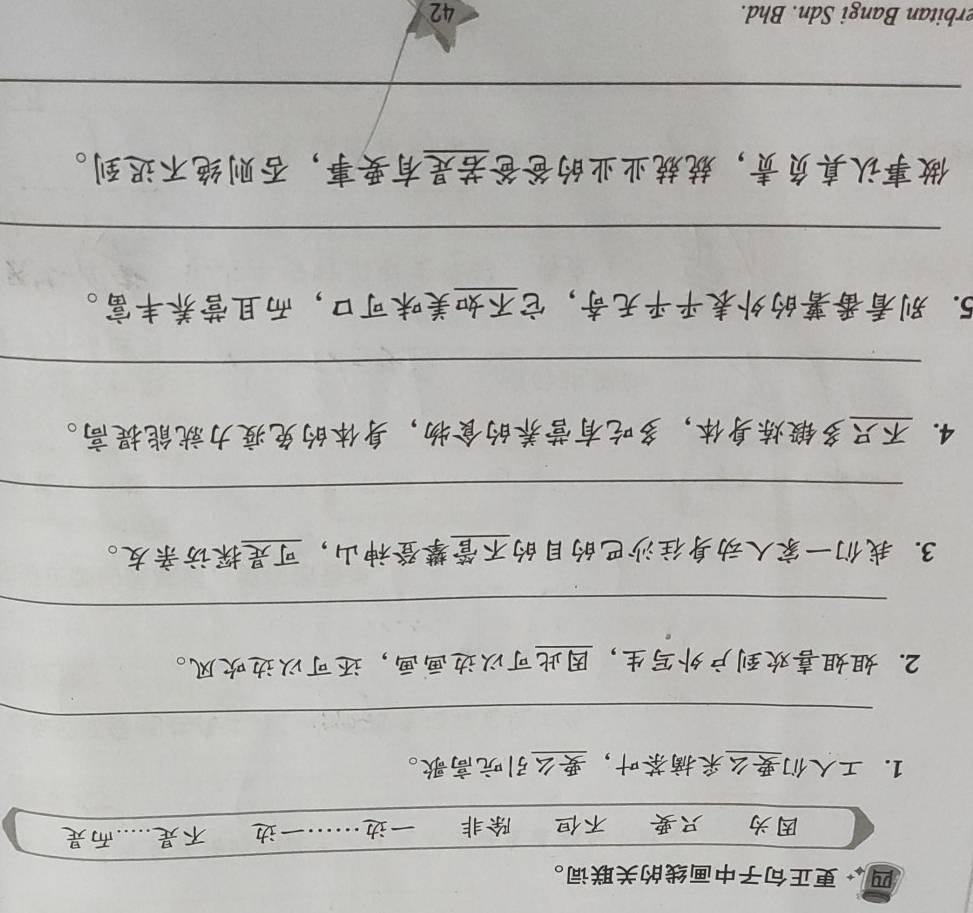 四 更正句子中画线的关联词。
因为 只要 不但 除非 一边……一边 不是……而是
1. 工人们要么采摘茶叶，要么引吭高歌。
2. 姐姐喜欢到户外写生，因此可以边画画，还可以边吹风。
3. 我们一家人动身往沙巴的目的不管攀登神山，可是探访亲友。
4. 不只多锻炼身体，多吃有营养的食物，身体的免疫力就能提高。
5. 别看番薯的外表平平无奇，它不如美味可口，而且营养丰富。
做事认真负责，兢兢业业的爸爸若是有要事，否则绝不迟到。
erbitan Bangi Sdn. Bhd.
42